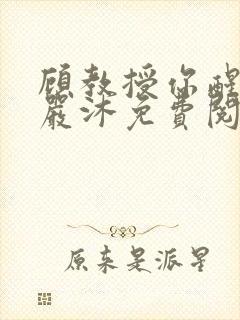 顾教授你醒
严沐免费阅
原来是派星